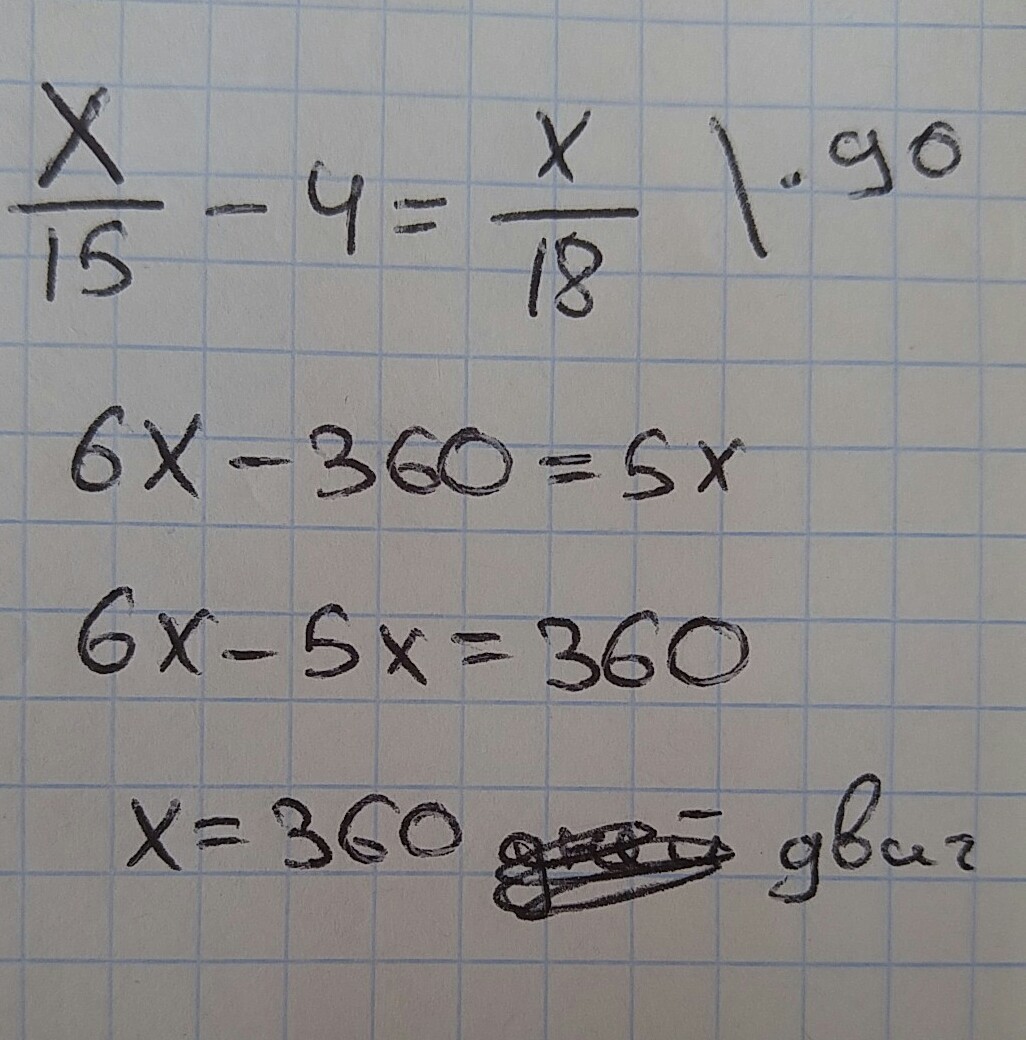 x/15 - 4 = x/18 \ · 90
6x - 360 = 5x
6x - 5x = 360
x = 360 двиг